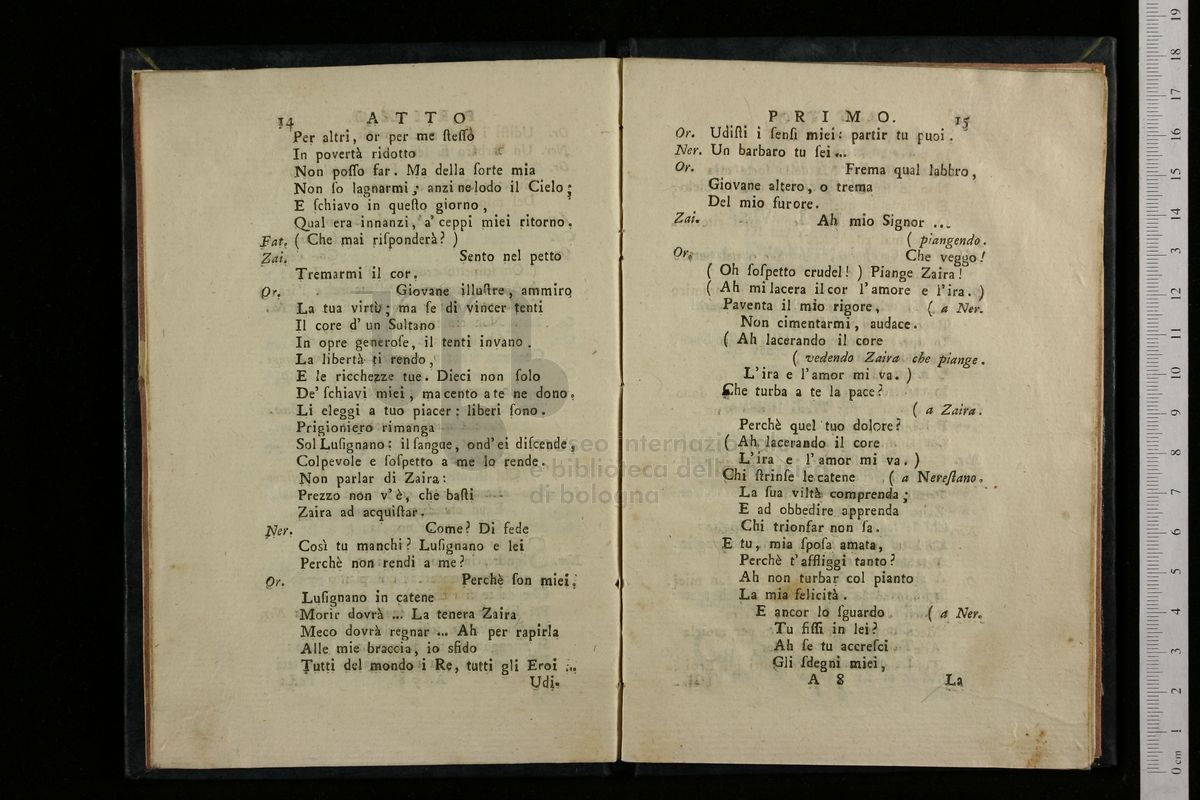 14 ATTO
Per altri, or per me ſteſſo
In povertà ridotto
Non poſſo far. Ma della ſorte mia
Non ſo lagnarmi; anzi ne lodo il Cielo;
E ſchiavo in queſto giorno,
Qual era innanzi, a' ceppi miei ritorno.
Fat. ( Che mai riſponderà? )
Zai. Sento nel petto
Tremarmi il cor.
Or. Giovane illuſtre, ammiro
La tua virtù; ma ſe di vincer tenti
Il core d' un Sultano
In opre generoſe, il tenti invano.
La libertà ti rendo,
E le ricchezze tue. Dieci non ſolo
De' ſchiavi miei, ma cento a te ne dono.
Li eleggi a tuo piacer: liberi ſono.
Prigioniero rimanga
Sol Luſignano: il ſangue, ond' ei diſcende,
Colpevole e ſoſpetto a me lo rende.
Non parlar di Zaira:
Prezzo non v' è, che baſti
Zaira ad acquiſtar.
Ner. Come? Di fede
Così tu manchi? Luſignano e lei
Perchè non rendi a me?
Or. Perchè ſon miei.
Luſignano in catene
Morir dovrà ... La tenera Zaira
Meco dovrà regnar ... Ah per rapirla
Alle mie braccia, io sfido
Tutti del mondo i Re, tutti gli Eroi ...
Udi-
PRIMO. 15
Or. Udiſti i ſenſi miei: partir tu puoi.
Ner. Un barbaro tu ſei...
Or. Frema qual labbro,
Giovane altero, o trema
Del mio furore.
Zai. Ah mio Signor ...
( piangendo.
Or. Che veggo!
( Oh ſoſpetto crudel! ) Piange Zaira!
( Ah mi lacera il cor l' amore e l'ira. )
Paventa il mio rigore, ( a Ner.
Non cimentarmi, audace.
( Ah lacerando il core
( vedendo Zaira che piange.
L'ira e l'amor mi va. )
Che turba a te la pace?
( a Zaira.
Perchè quel tuo dolore?
( Ah lacerando il core
L'ira e l'amor mi va. )
Chi ſtrinſe le catene ( a Nereſtano.
La ſua viltà comprenda;
E ad obbedire apprenda
Chi trionfar non ſa.
E tu, mia ſpoſa amata,
Perchè t'affliggi tanto?
Ah non turbar col pianto
La mia felicità.
E ancor lo ſguardo ( a Ner.
Tu fiſſi in lei?
Ah ſe tu accreſci
Gli ſdegni miei,
A 8 La
museo internazionale
e biblioteca della musica
di bologna
0 cm 1 2 3 4 5 6 7 8 9 10 11 12 13 14 15 16 17 18 19